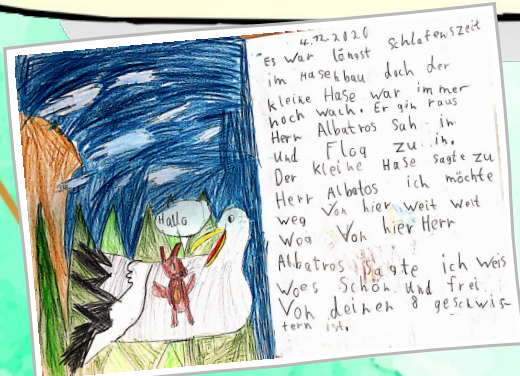 4.12.2020
Es war längst Schlafenszeit
im Hasenbau doch der
kleine Hase war immer
noch wach. Er gin raus
Herr Albatros sah in
und Flog zu in.
Der kleine Hase sagte zu
Herr Albatos ich möchte
weg Von hier weit weit
weg Von hier Herr
Albatros sagte ich weis
woes Schön und frei
Von deinen 8 geschwis-
tern ist.
Hallo